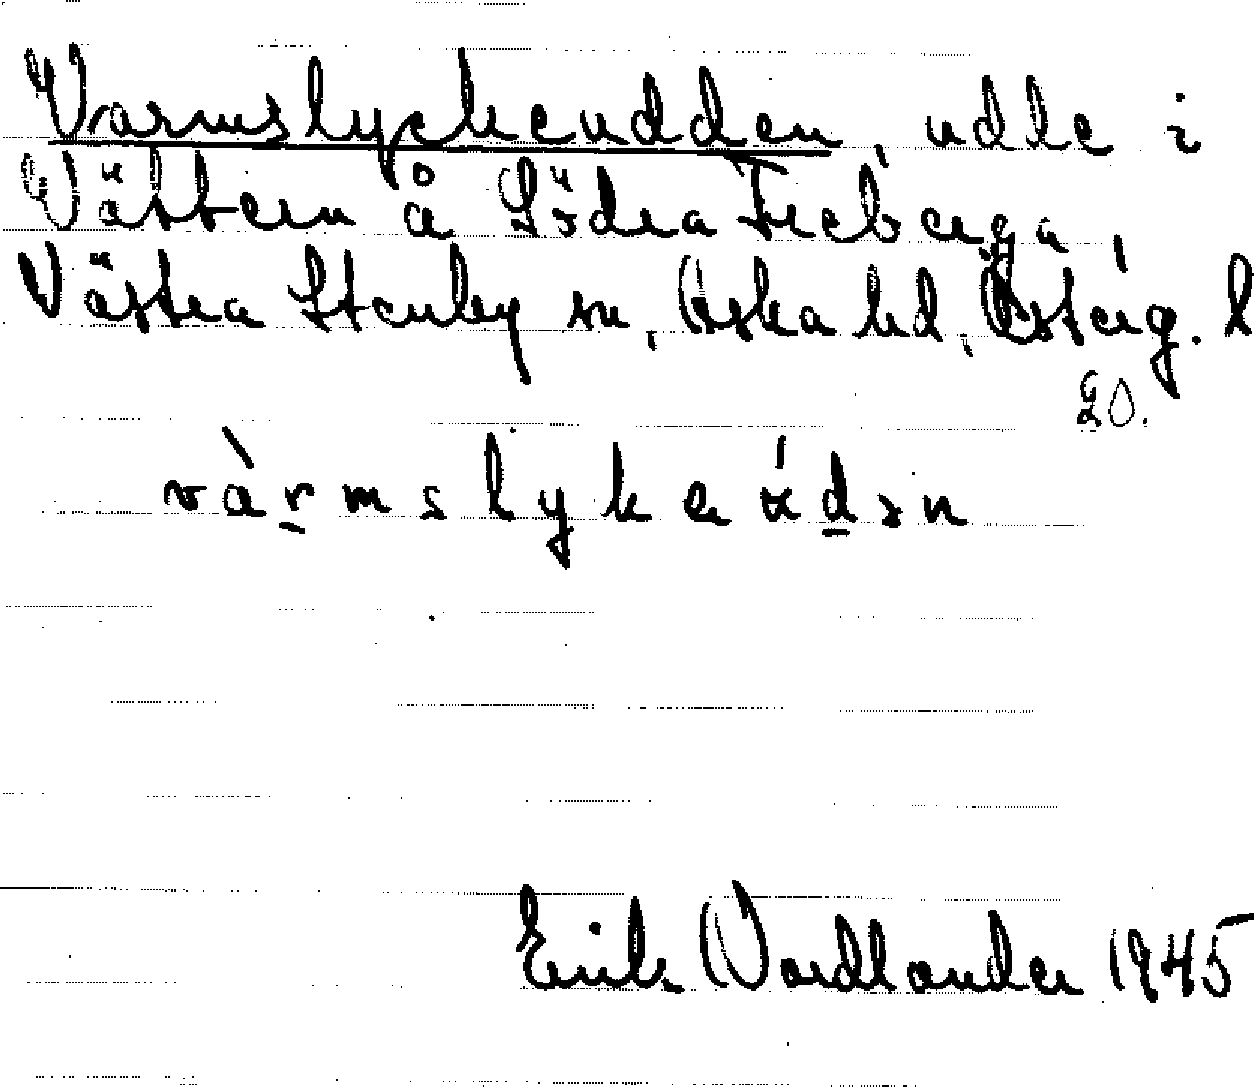 Varmslyckeudden, udde i
Vättern å Södra Freberga,
Västra Stenby sn, Aska hd, Österg. l
20.
vàrmslykeúdən
Erik Nordlander 1945